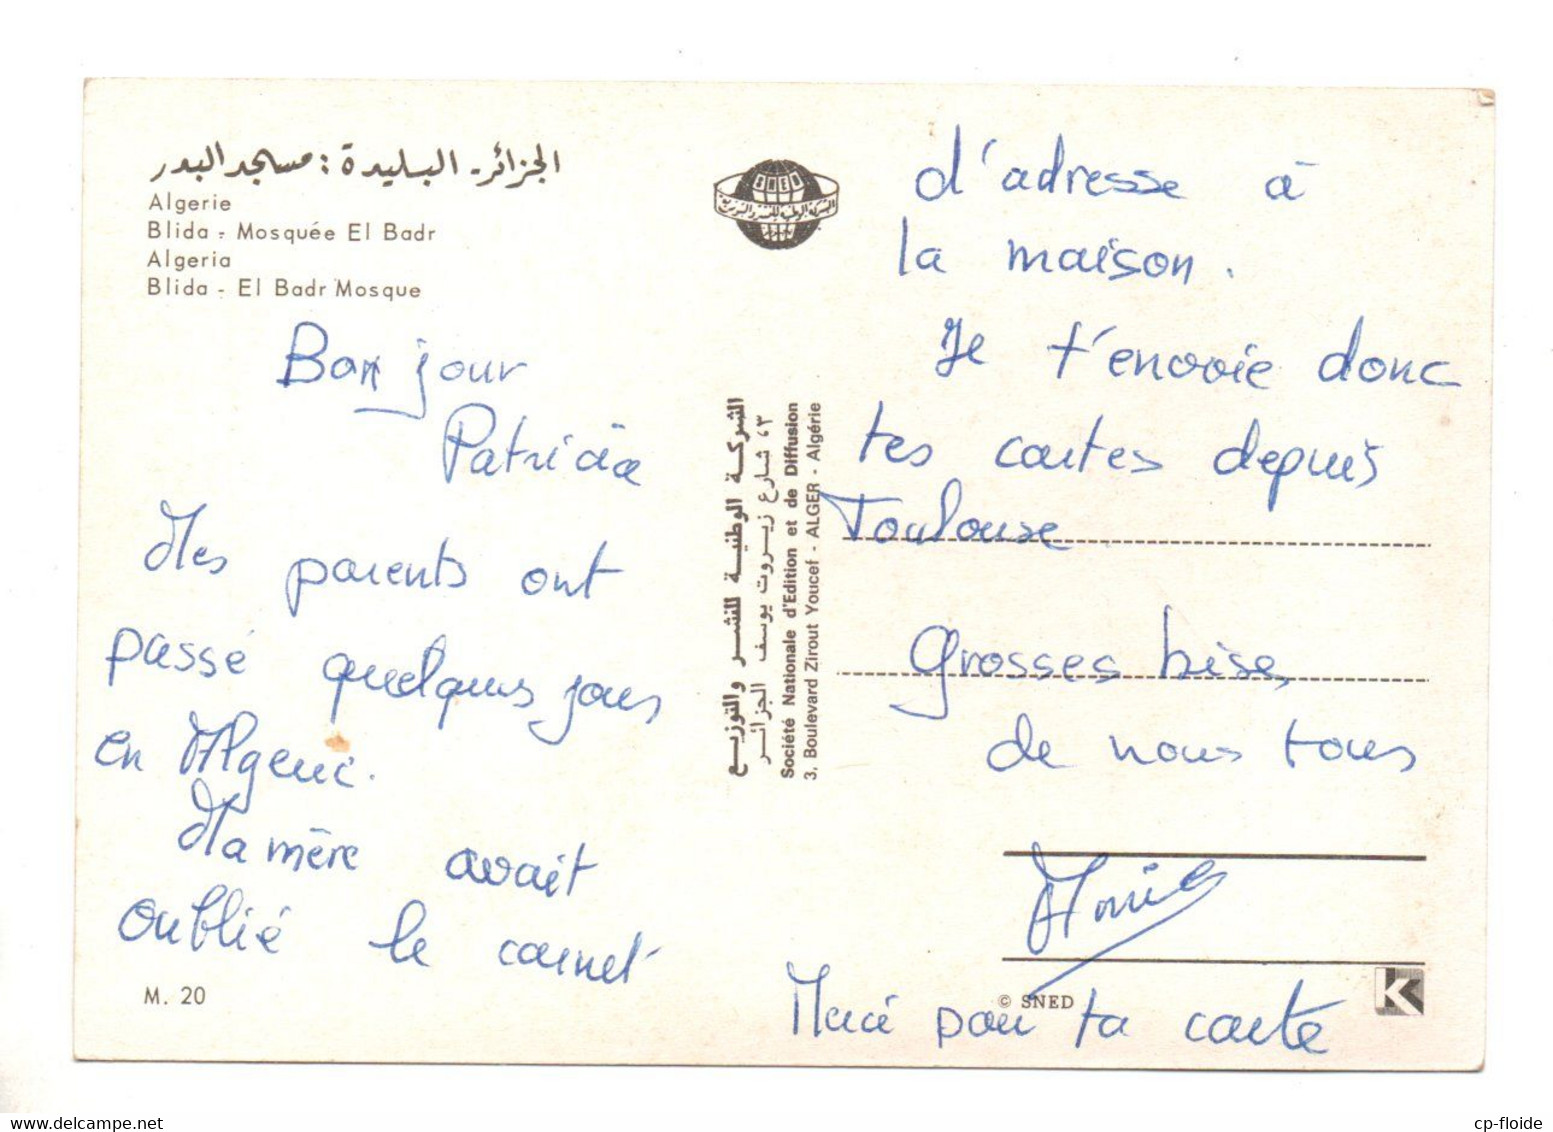 الجزائر - البليدة : مسجد البدر
Algerie
Blida - Mosquée El Badr
Algeria
Blida - El Badr Mosque
Bonjour
Patricia
Mes parents ont
passé quelques jours
en Algerie.
Ma mère avait
oublié le carnet
M. 20
SNED
الشركة الوطنية للنشر والتوزيع
الشركة الوطنية للنشر والتوزيع
٣، شارع زيروت يوسف الجزائر
Société Nationale d'Edition et de Diffusion
3, Boulevard Zirout Youcef - ALGER - Algérie
d'adresse à
la maison.
Je t'envoie donc
tes cartes depuis
Toulouse.
Grosses bises
de nous tous
© SNED
K
Merci pour ta carte
cp-floide
www.delcampe.net